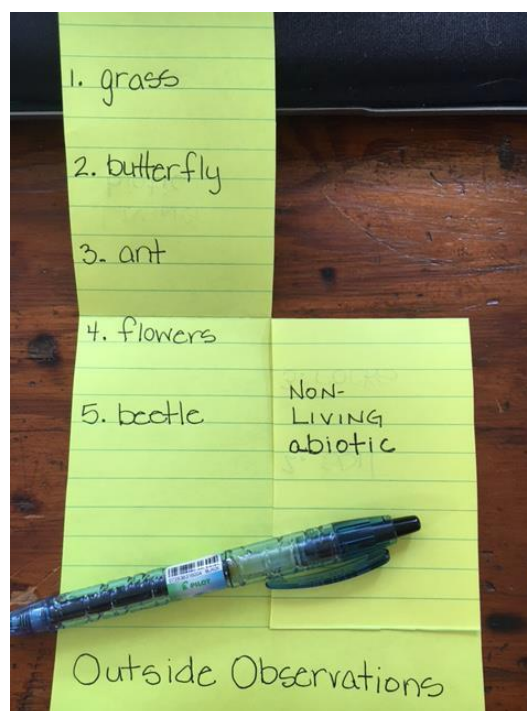 1. grass
2. butterfly
3. ant
4. flowers
5. beetle
NON-
LIVING
abiotic
PILOT
Outside Observations